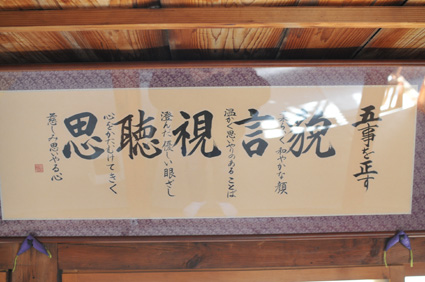 五事を正す
貌
まろく和やかな顔
言
温かく思いやりのあることば
視
澄んだ優しい眼ざし
聴
心をかたむけてきく
思
慈しみ思いやる心